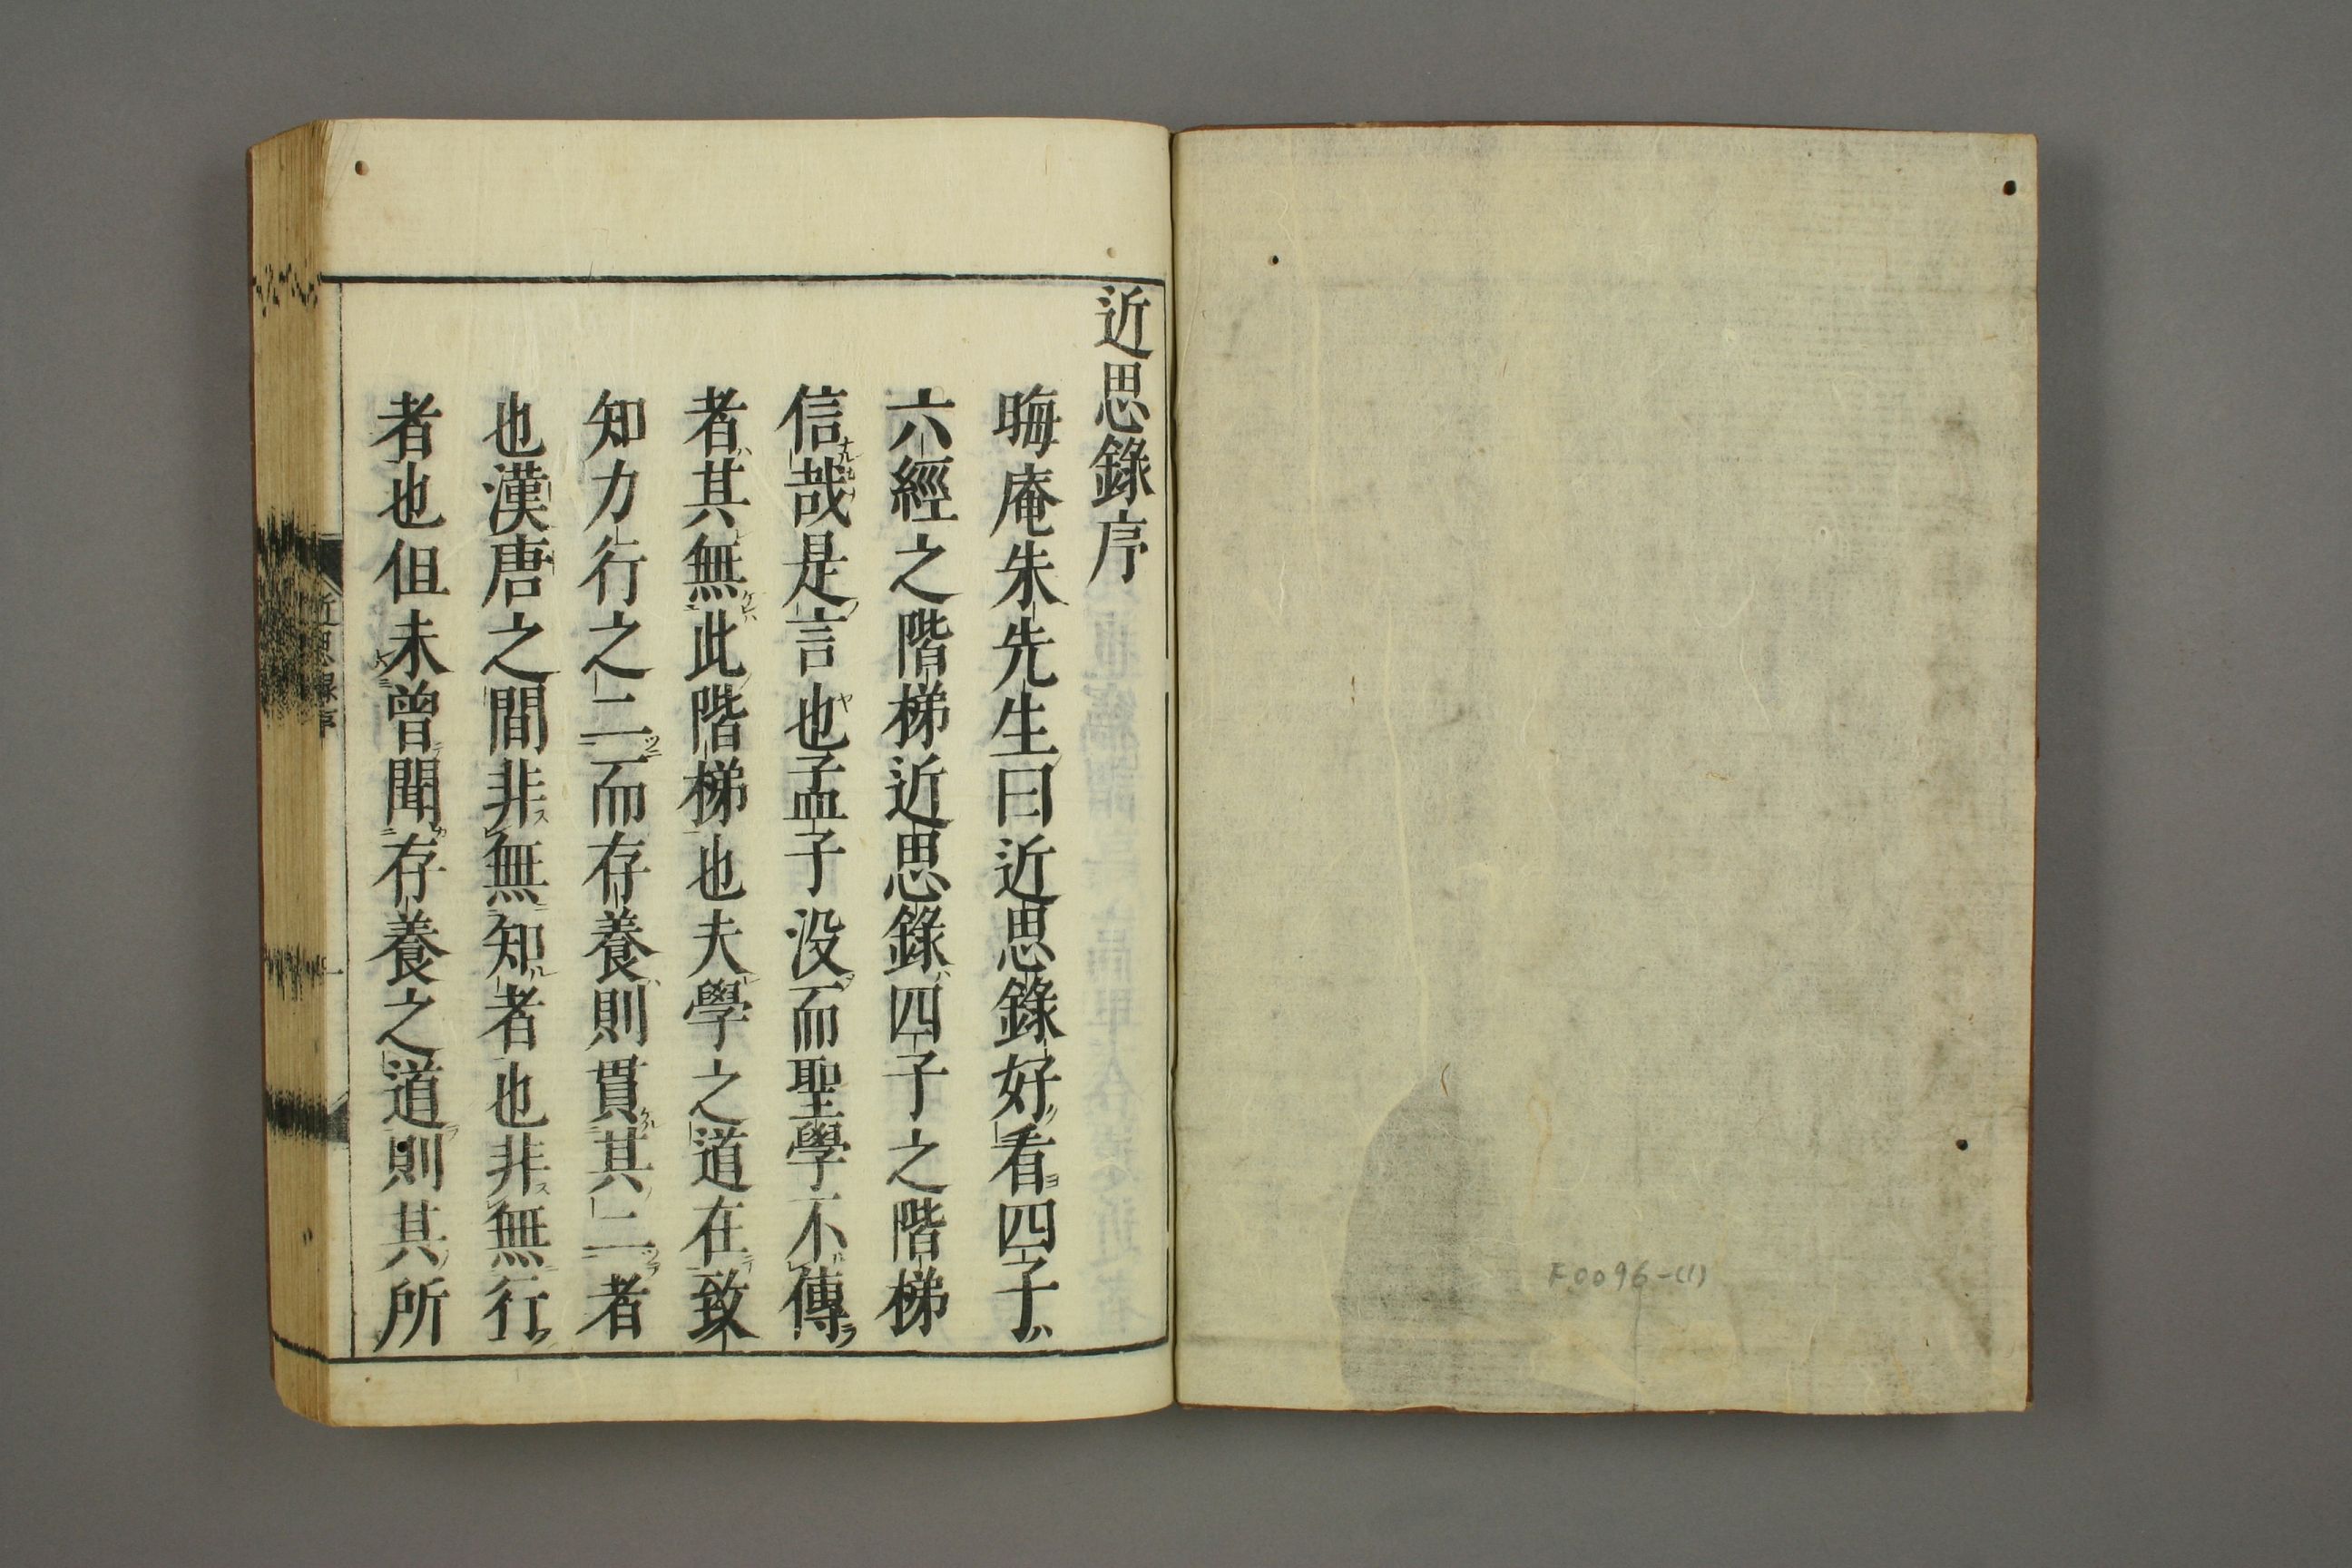 近思錄序
晦庵朱先生曰近思錄好看四子
六經之階梯近思錄四子之階梯
信哉是言也孟子没而聖學不傳
者其無此階梯也夫學之道在致
知力行之二而存養則貫其二者
也漢唐之間非無知者也非無行
者也但未曾聞存養之道則其所
近思錄序
一
F.0096-(1)